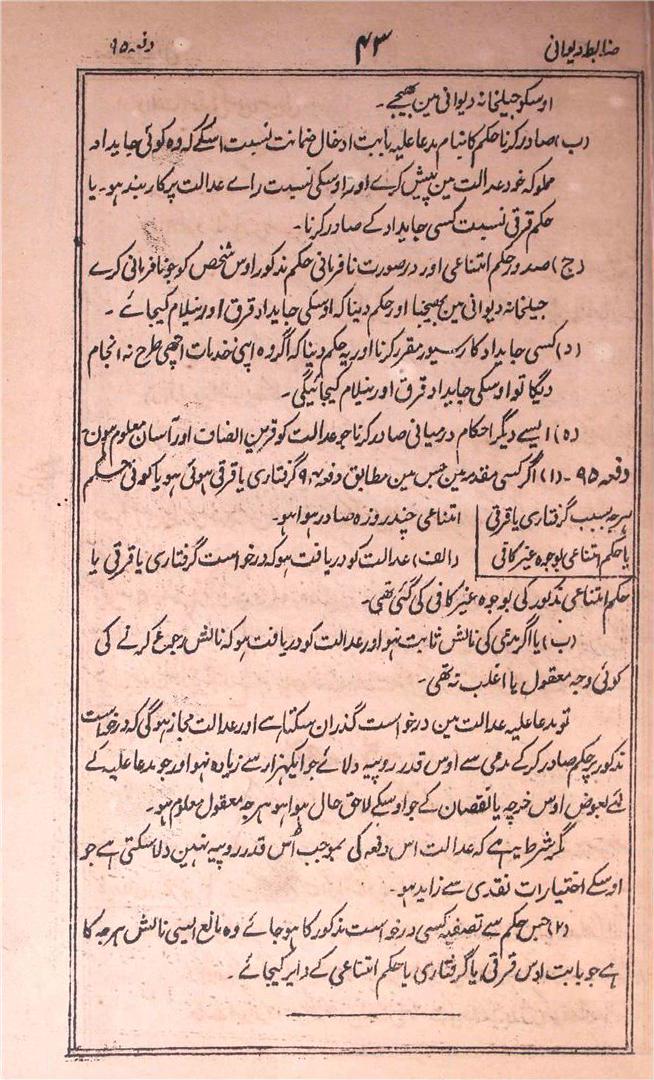 ضابطہ دیوانی
۴۳
دفعہ ۹۵
اوسکو جیلخانہ دیوانی مین بھیجے۔
(ب) صادر کرنا حکم کا بنام مدعا علیہ بابت ادخال ضمانت نسبت اسکے کہ وہ کوئی جایداد
مملوکہ خود عدالت مین پیش کرے اور اوسکی نسبت راے عدالت پر کاربند ہو۔ یا
حکم قرقی نسبت کسی جایداد کے صادر کرنا۔
(ج) صدور حکم امتناعی اور در صورت نافرمانی حکم مذکور اوس شخص کو جو نافرمانی کرے
جیلخانہ دیوانی مین بھیجنا اور حکم دینا کہ اوسکی جایداد قرق اور نیلام کیجائے۔
(د) کسی جایداد کا رسیور مقرر کرنا اور یہ حکم دینا کہ اگر وہ اپنی خدمات اچھی طرح نہ انجام
دیگا تو اوسکی جایداد قرق اور نیلام کیجائیگی۔
(ہ) ایسے دیگر احکام درمیانی صادر کرنا جو عدالت کو قرین انصاف اور آسان معلوم ہون
دفعہ ۹۵۔ (۱) اگر کسی مقدمہ مین جس مین مطابق دفعہ ۹۴ گرفتاری یا قرقی ہوئی ہو یا کوئی حکم
ہرجہ بسبب گرفتاری یا قرقی
یا حکم امتناعی بوجوہ غیر کافی
امتناعی چند روزہ صادر ہوا ہو۔
(الف) عدالت کو دریافت ہو کہ درخواست گرفتاری یا قرقی یا
حکم امتناعی مذکور کی بوجوہ غیر کافی کی گئی تھی۔
(ب) یا اگر مدعی کی نالش ثابت نہو اور عدالت کو دریافت ہو کہ نالش رجوع کرنے کی
کوئی وجہ معقول یا اغلب نہ تھی۔
تو مدعا علیہ عدالت مین درخواست گذران سکتا ہے اور عدالت مجاز ہوگی کہ درخواست
مذکور پر حکم صادر کرکے مدعی سے اوس قدر روپیہ دلائے جو ایکہزار سے زیادہ نہو اور جو مدعا علیہ کے
لئے بعوض اوس خرچہ یا نقصان کے جو اوسکے لاحق حال ہوا ہو ہرجہ معقول معلوم ہو۔
مگر شرط یہ ہے کہ عدالت اس دفعہ کی بموجب اُس قدر روپیہ نہین دلا سکتی ہے جو
اوسکے اختیارات نقدی سے زاید ہو۔
(۲) جس حکم سے تصفیہ کسی درخواست مذکور کا ہو جائے وہ مانع ایسی نالش ہرجہ کا
ہے جو بابت اوس قرقی یا گرفتاری یا حکم امتناعی کے دایر کیجائے۔